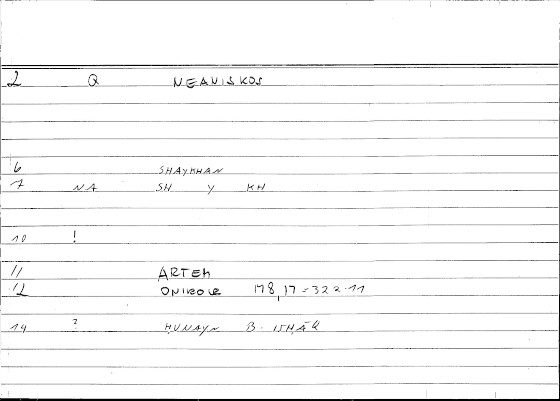 2 Q NEANISKOS
6 SHAYKHAN
7 NA SH Y KH
10 !
11 ARTEM
12 ONIROCR 178,17=322.11
14 ? HUNAYN B. ISHĀQ